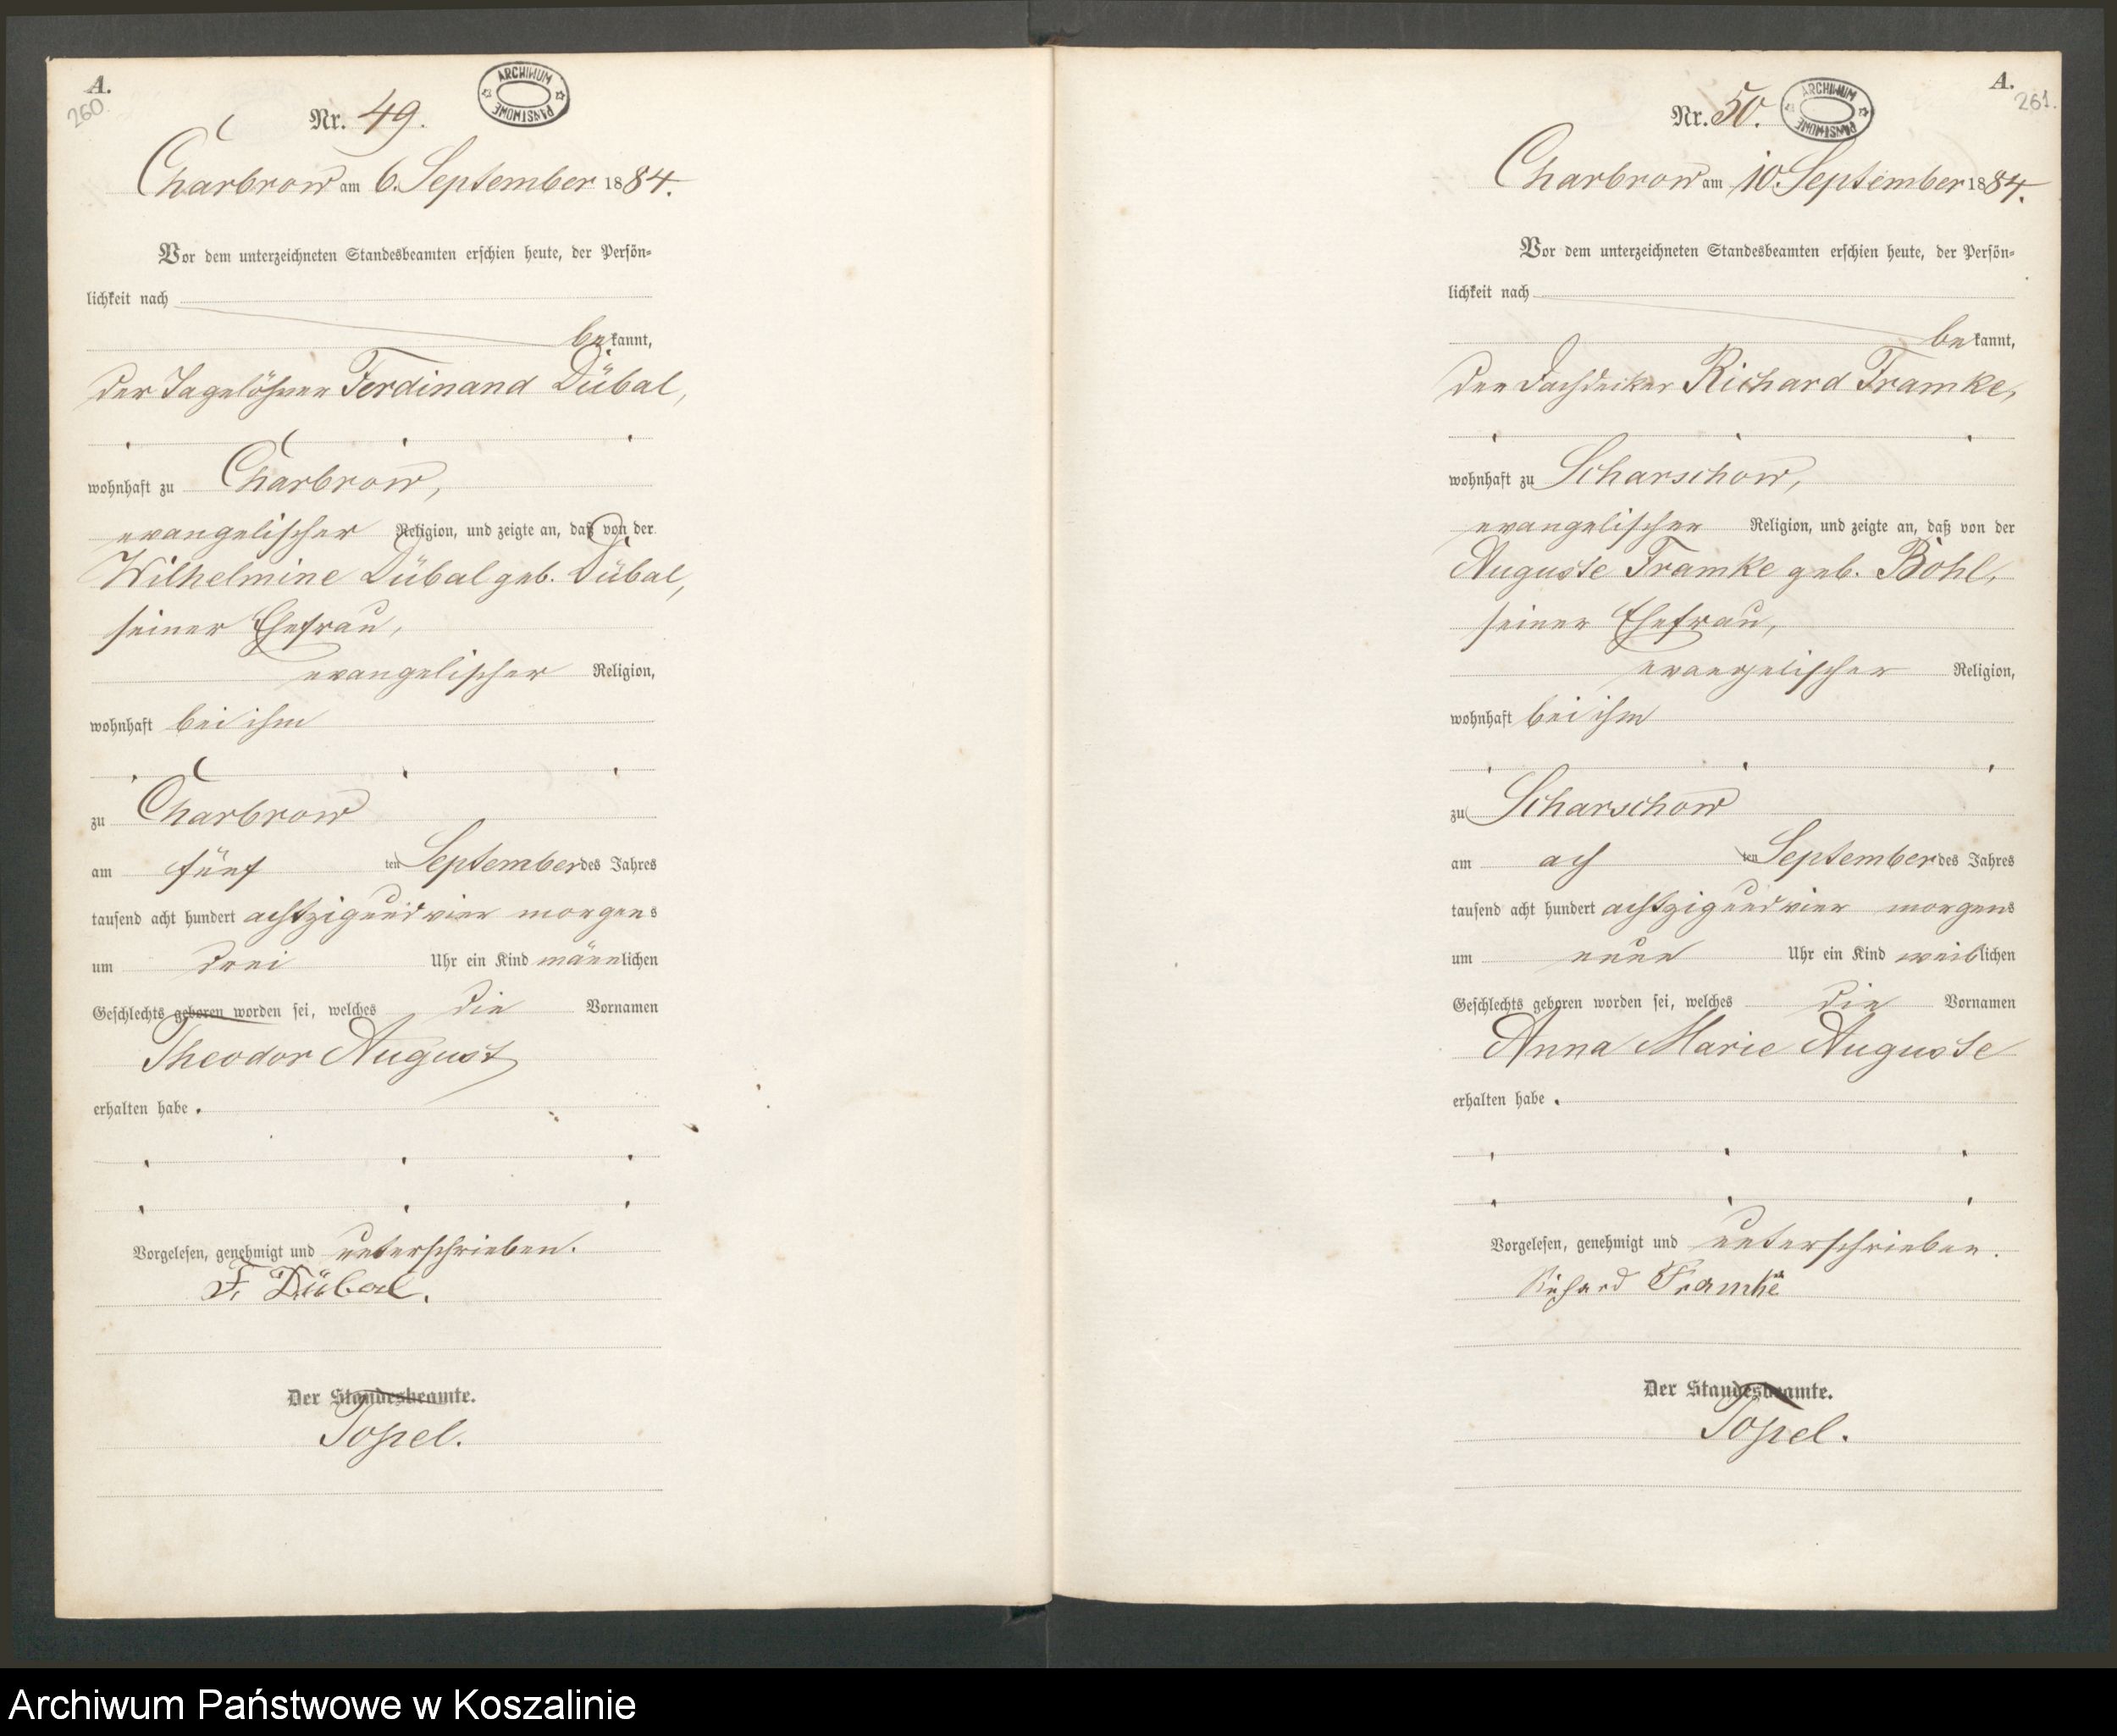 A.
260.
Nr. 49.
ARCHIWUM PAŃSTWOWE
Charbrow am 6. September 1884.
Vor dem unterzeichneten Standesbeamten erschien heute, der Persön-
lichkeit nach
bekannt,
der Tagelöhner Ferdinand Dübal,
wohnhaft zu Charbrow,
evangelischer Religion, und zeigte an, daß von der
Wilhelmine Dübal geb. Dübal,
seiner Ehefrau,
evangelischer Religion,
wohnhaft bei ihm
zu Charbrow
am fünf ten September des Jahres
tausend acht hundert achtzig und vier morgens
um drei Uhr ein Kind männlichen
Geschlechts geboren worden sei, welches die Vornamen
Theodor August
erhalten habe.
Vorgelesen, genehmigt und unterschrieben.
F. Dübal.
Der Standesbeamte.
Topel.
A.
261.
Nr. 50.
ARCHIWUM PAŃSTWOWE
Charbrow am 10. September 1884.
Vor dem unterzeichneten Standesbeamten erschien heute, der Persön-
lichkeit nach
bekannt,
der Dachdecker Richard Framke,
wohnhaft zu Scharschow,
evangelischer Religion, und zeigte an, daß von der
Auguste Framke geb. Bohl,
seiner Ehefrau,
evangelischer Religion,
wohnhaft bei ihm
zu Scharschow
am ach ten September des Jahres
tausend acht hundert achtzig und vier morgens
um neun Uhr ein Kind weiblichen
Geschlechts geboren worden sei, welches die Vornamen
Anna Marie Auguste
erhalten habe.
Vorgelesen, genehmigt und unterschrieben.
Richard Framke
Der Standesbeamte.
Topel.
Archiwum Państwowe w Koszalinie